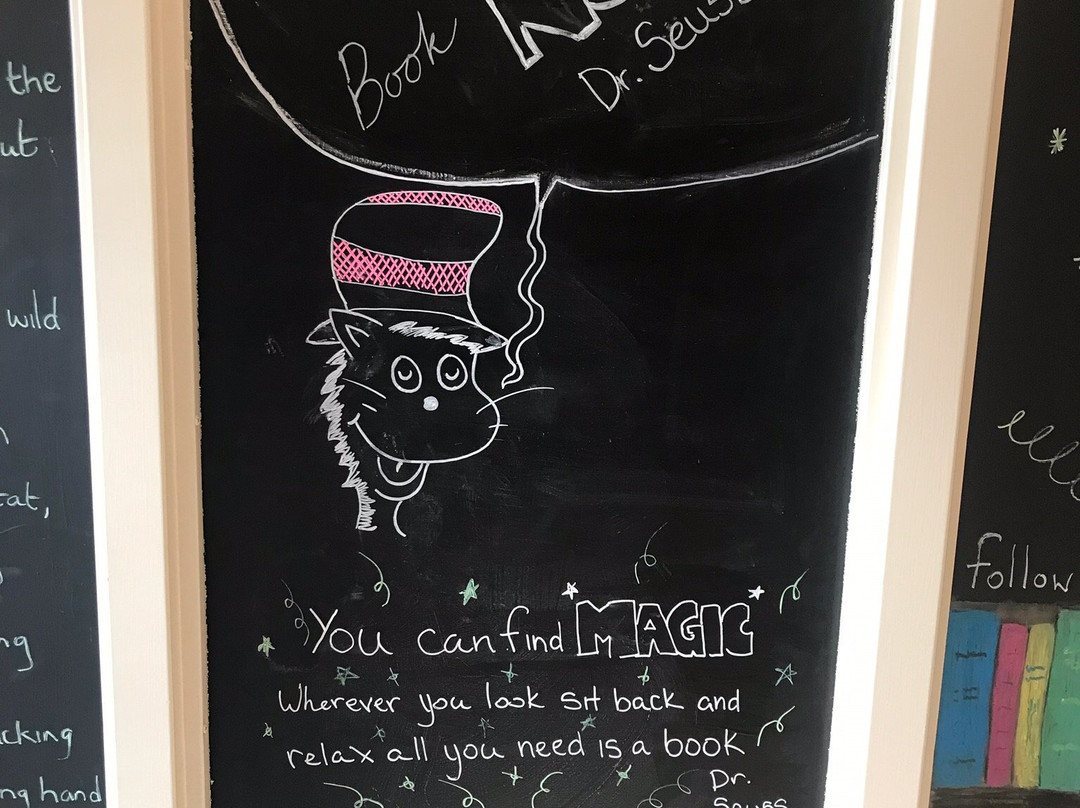 the
ut
wild
cat,
ng
cking
ng hand
Book
Dr. Seuss
You can find MAGIC
Wherever you look sit back and
relax all you need is a book
Dr.
Seuss
follow